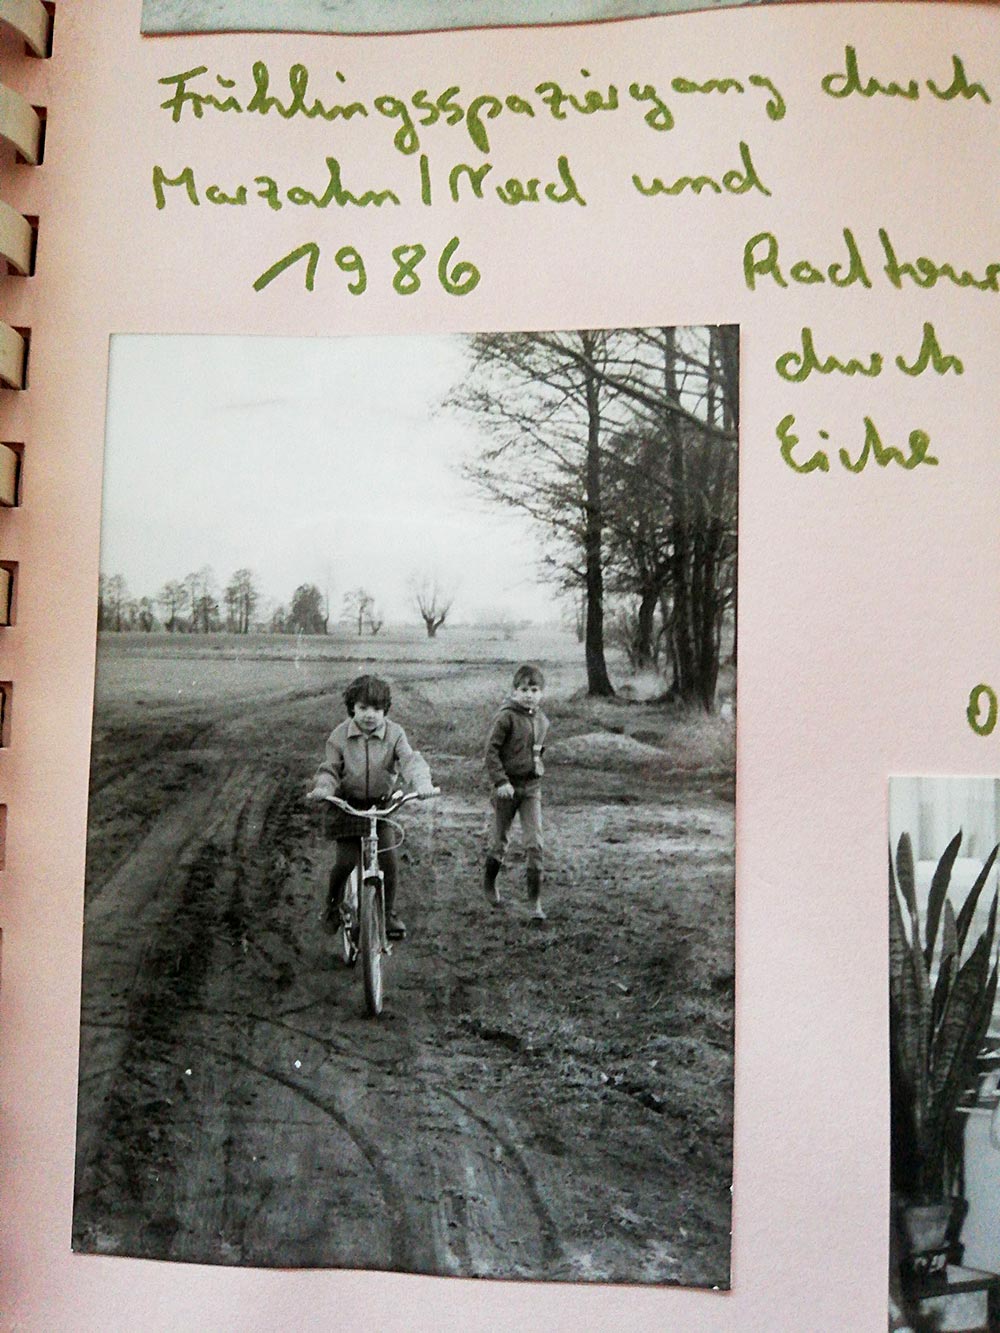 Frühlingsspaziergang durch
Marzahn/Nord und
1986
Radtour
durch
Eiche